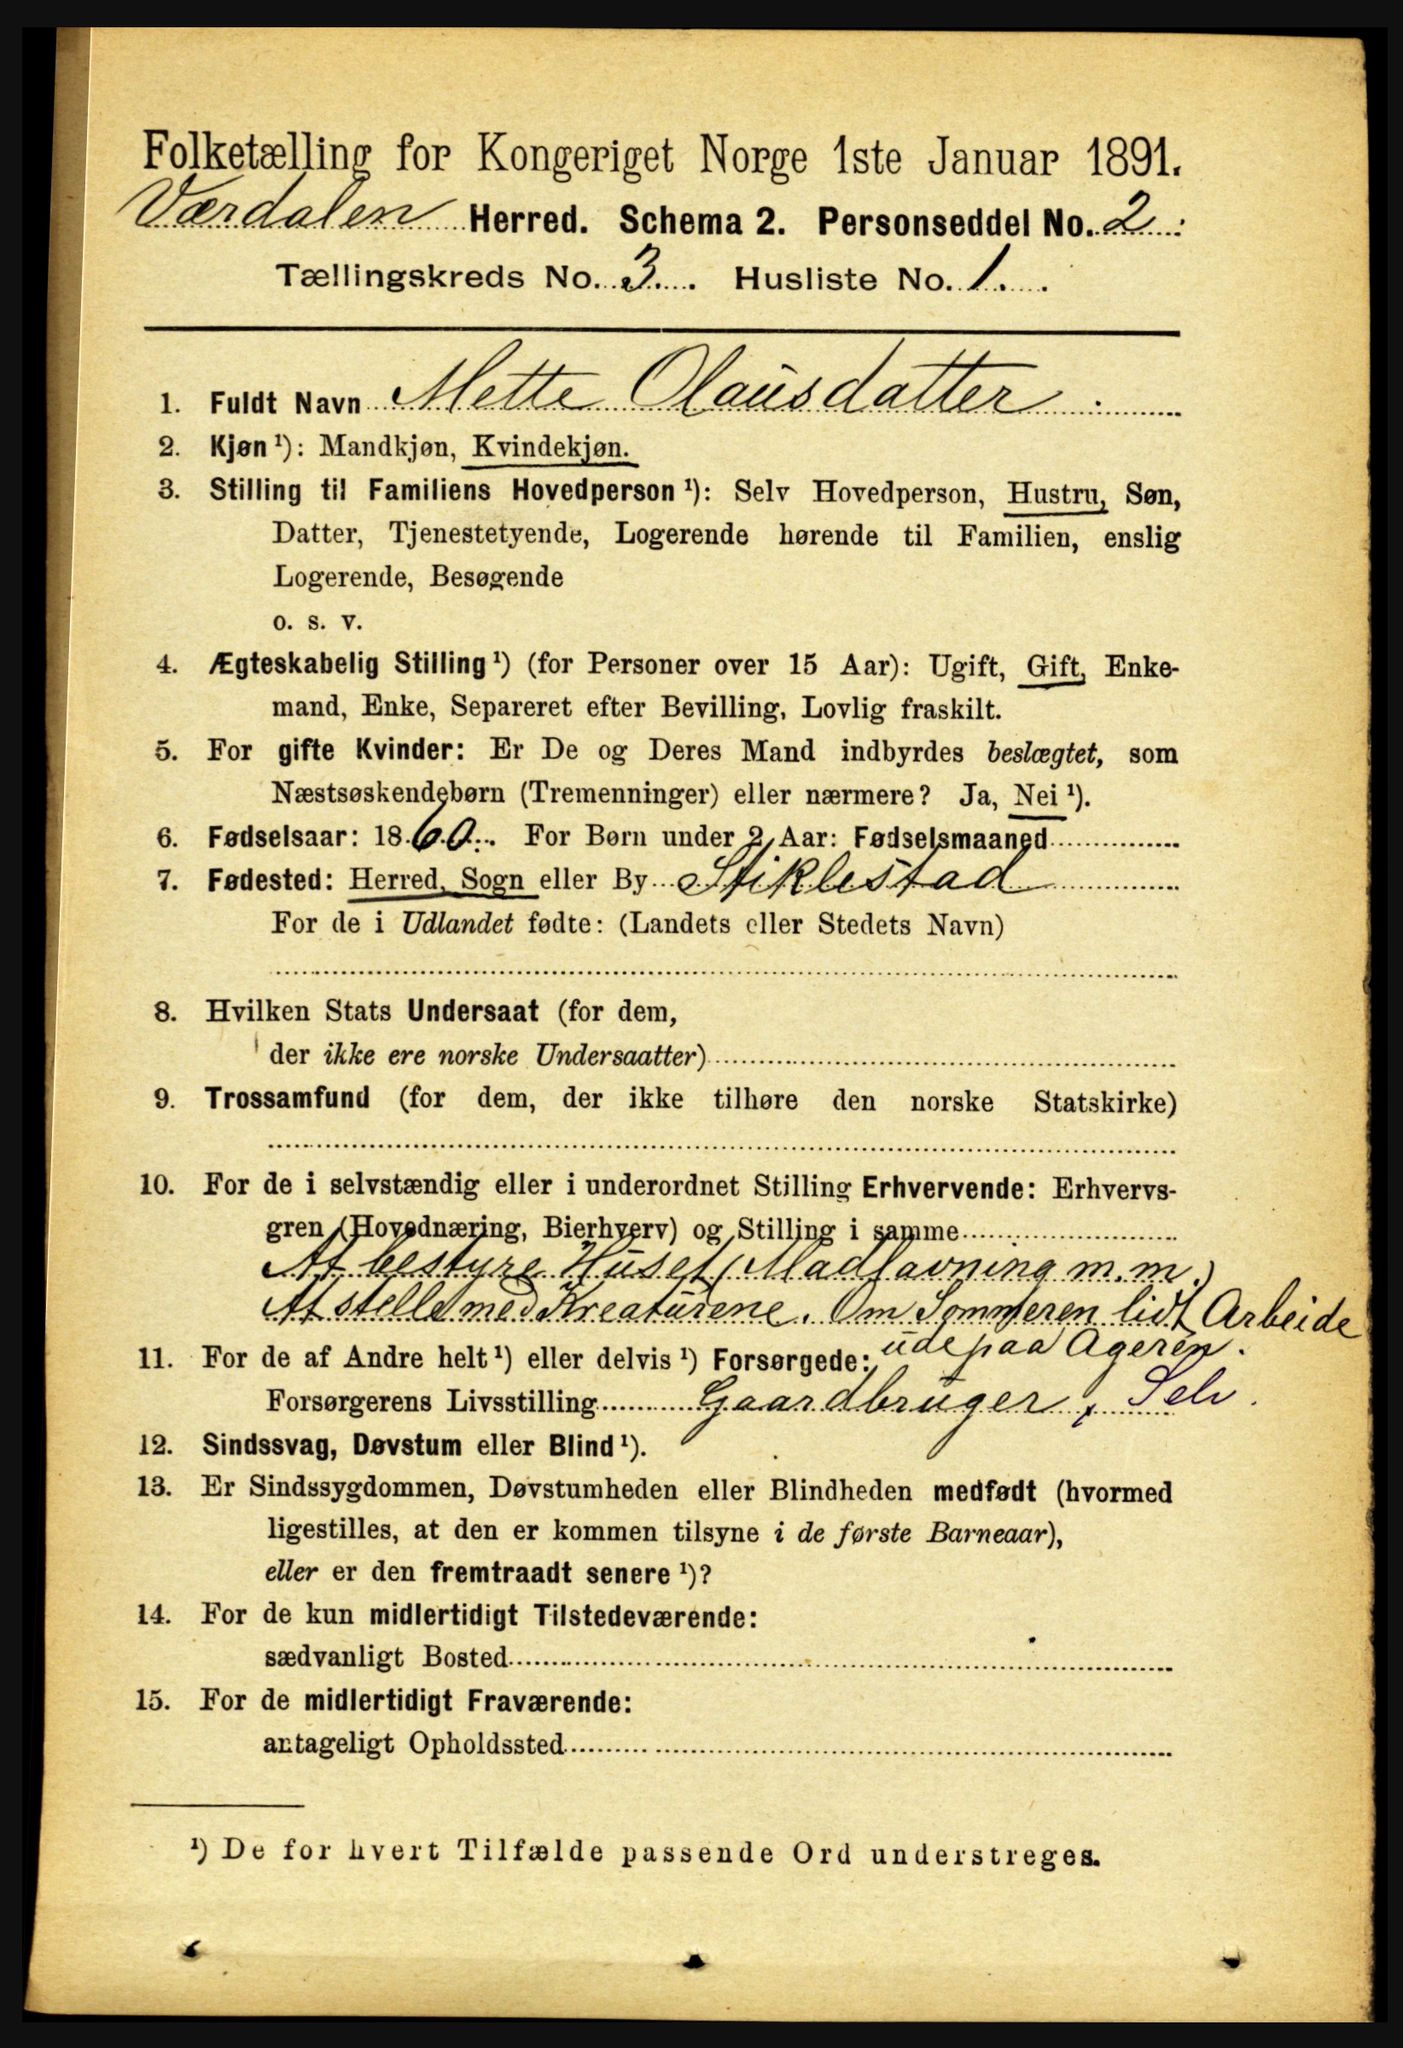 Folketælling for Kongeriget Norge 1ste Januar 1891.
Værdalen Herred. Schema 2. Personseddel No. 2.
Tællingskreds No. 3. Husliste No. 1.
1. Fuldt Navn Mette Olausdatter
2. Kjøn ¹): Mandkjøn, Kvindekjøn.
3. Stilling til Familiens Hovedperson ¹): Selv Hovedperson, Hustru, Søn,
Datter, Tjenestetyende, Logerende hørende til Familien, enslig
Logerende, Besøgende
o. s. v.
4. Ægteskabelig Stilling ¹) (for Personer over 15 Aar): Ugift, Gift, Enke-
mand, Enke, Separeret efter Bevilling, Lovlig fraskilt.
5. For gifte Kvinder: Er De og Deres Mand indbyrdes beslægtet, som
Næstsøskendebørn (Tremenninger) eller nærmere? Ja, Nei ¹).
6. Fødselsaar: 1860. For Børn under 2 Aar: Fødselsmaaned
7. Fødested: Herred, Sogn eller By Stiklestad
For de i Udlandet fødte: (Landets eller Stedets Navn)
8. Hvilken Stats Undersaat (for dem,
der ikke ere norske Undersaatter)
9. Trossamfund (for dem, der ikke tilhøre den norske Statskirke)
10. For de i selvstændig eller i underordnet Stilling Erhvervende: Erhvervs-
gren (Hovednæring, Bierhverv) og Stilling i samme
At bestyre Huset (Madlavning m.m.)
At stelle med Kreaturene. Om Sommeren lidt Arbeide
ude paa Ageren.
11. For de af Andre helt ¹) eller delvis ¹) Forsørgede:
Forsørgerens Livsstilling Gaardbruger, Selv.
12. Sindssvag, Døvstum eller Blind ¹).
13. Er Sindssygdommen, Døvstumheden eller Blindheden medfødt (hvormed
ligestilles, at den er kommen tilsyne i de første Barneaar),
eller er den fremtraadt senere ¹)?
14. For de kun midlertidigt Tilstedeværende:
sædvanligt Bosted
15. For de midlertidigt Fraværende:
antageligt Opholdssted
¹) De for hvert Tilfælde passende Ord understreges.